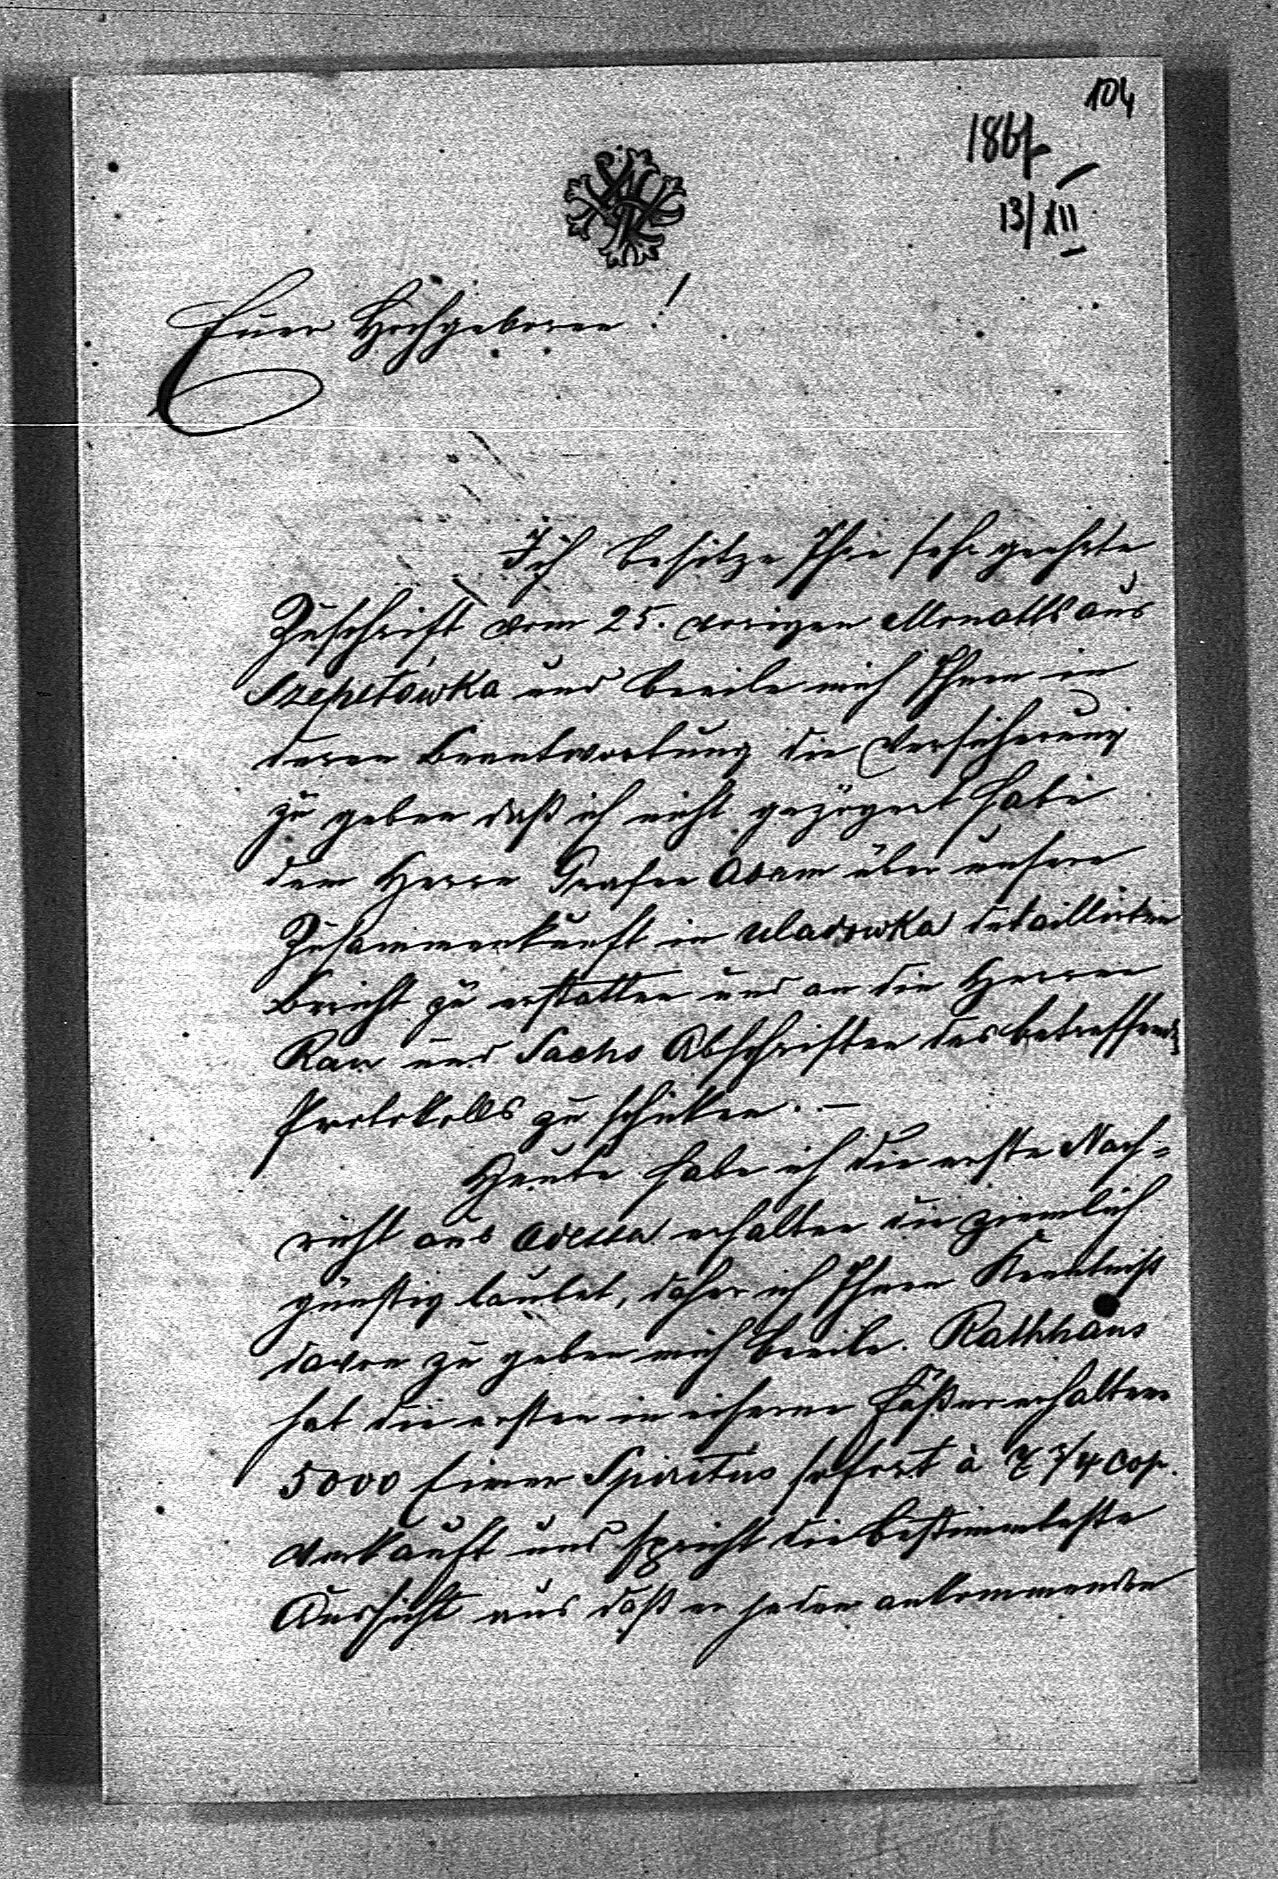 104
186
13/XII
Euer Hochgeboren!
Ich besitze Ihre sehr geehrte
Zuschrift vom 25. vorigen Monatts aus
Szepetówka und beeile mich Ihnen in
deren Beantwortung die Versicherung
zu geben daß ich nicht gezögert habe
dem Herrn Grafen Adam über unsere
Zusammenkunft in Uladowka detaillirten
Bericht zu erstatten und an die Herren
Rau und Sachs Abschriften des betreffend
Protokolls zu schicken. —
Heute habe ich die erste Nach=
richt aus Odessa erhalten die ziemlich
günstig lautet, daher ich Ihnen Kenntniß
davon zu geben mich beeile. Rathhaus
hat die ersten in eiserne Fäßer erhaltene
5000 Eimer Spiritus sofort à 7 3/4 Cop.
verkauft und spricht die bestimmteste
Aussicht aus daß er jeden ankommenden